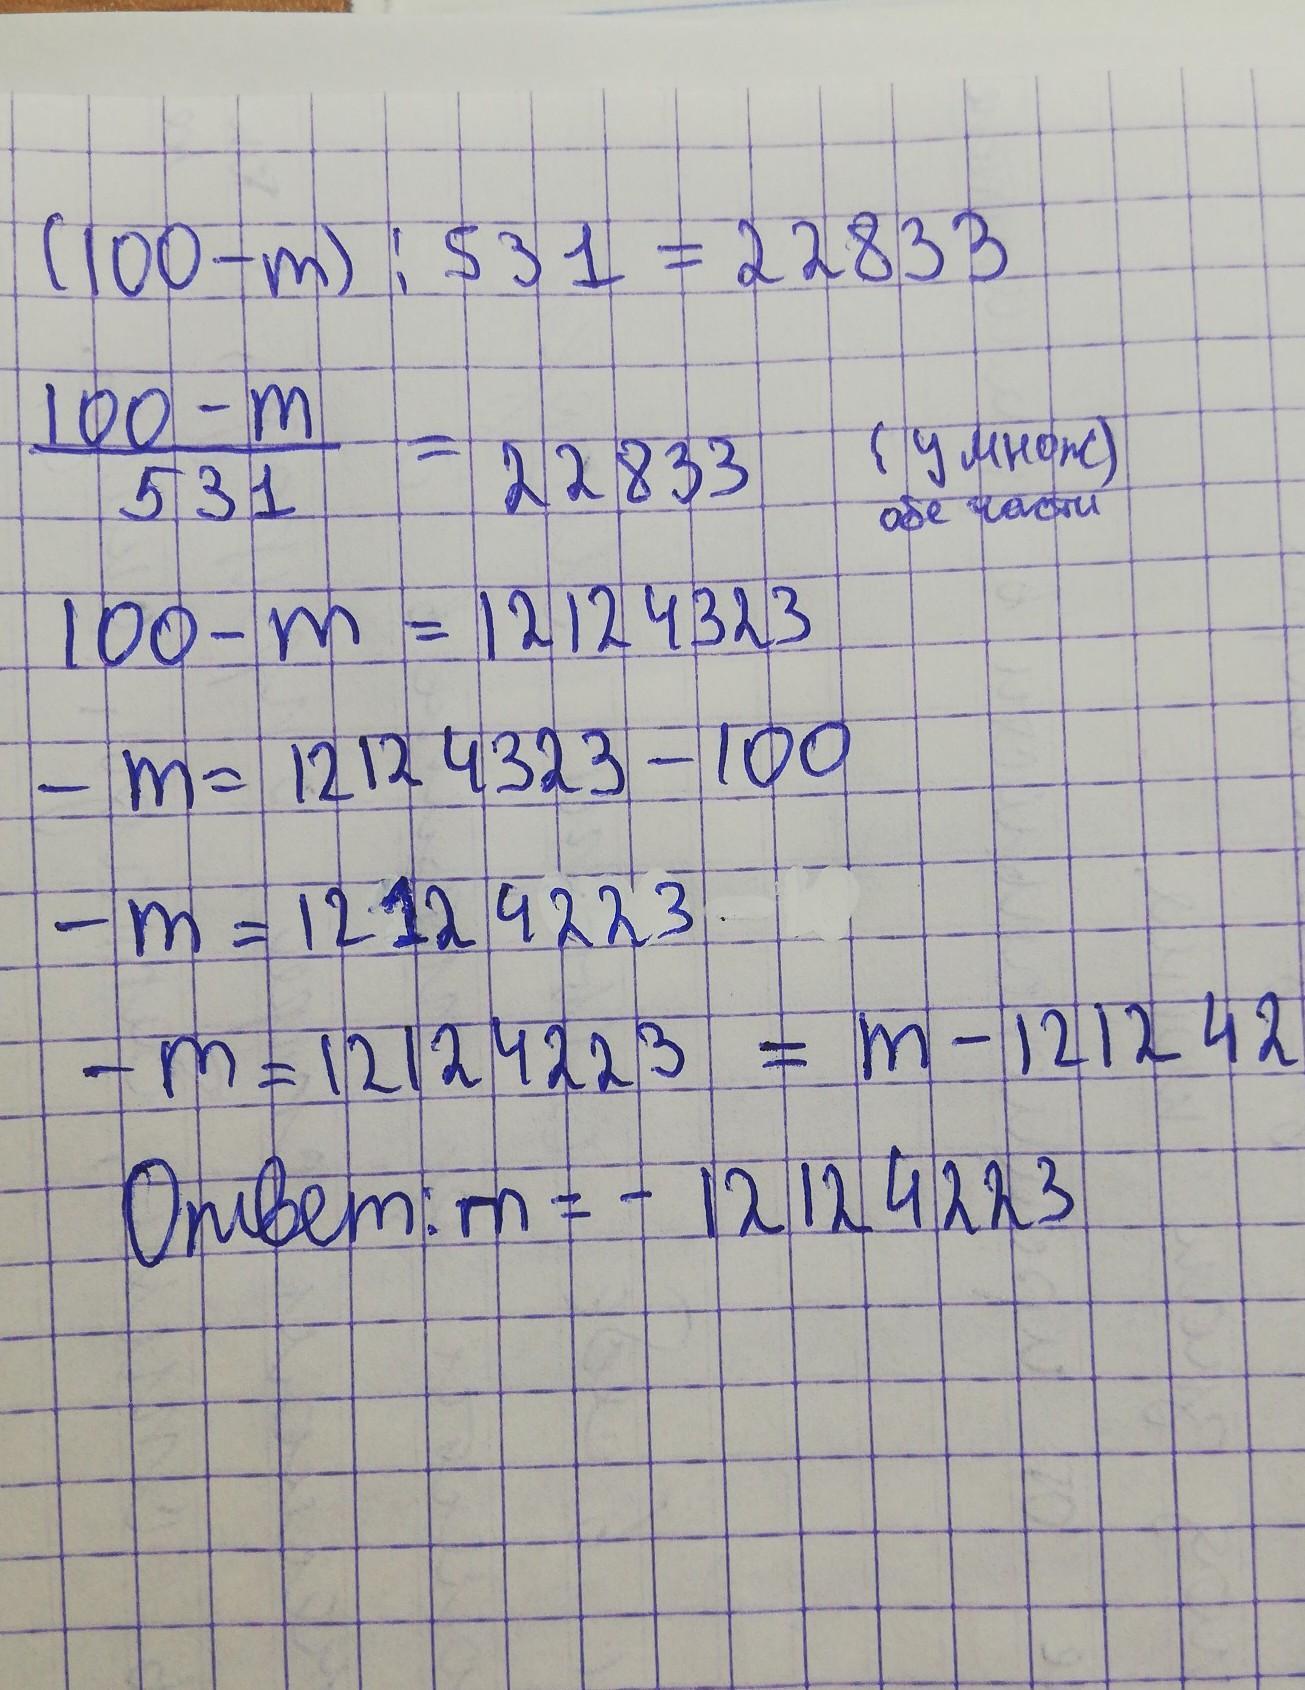 (100-m) : 531 = 22833
100 - m
531
= 22833 (умнож)
обе части
100 - m = 12124323
- m = 12124323 - 100
- m = 12124223
- m = 12124223 = m - 121242
Ответ: m = - 12124223